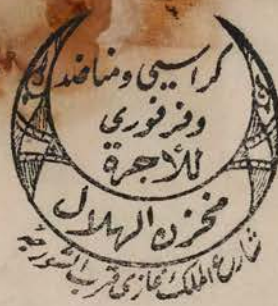 كراسي ومناضد
وفرفوري
للأجرة
مخزن الهلال
شارع الملك غازي قرب الشورجة